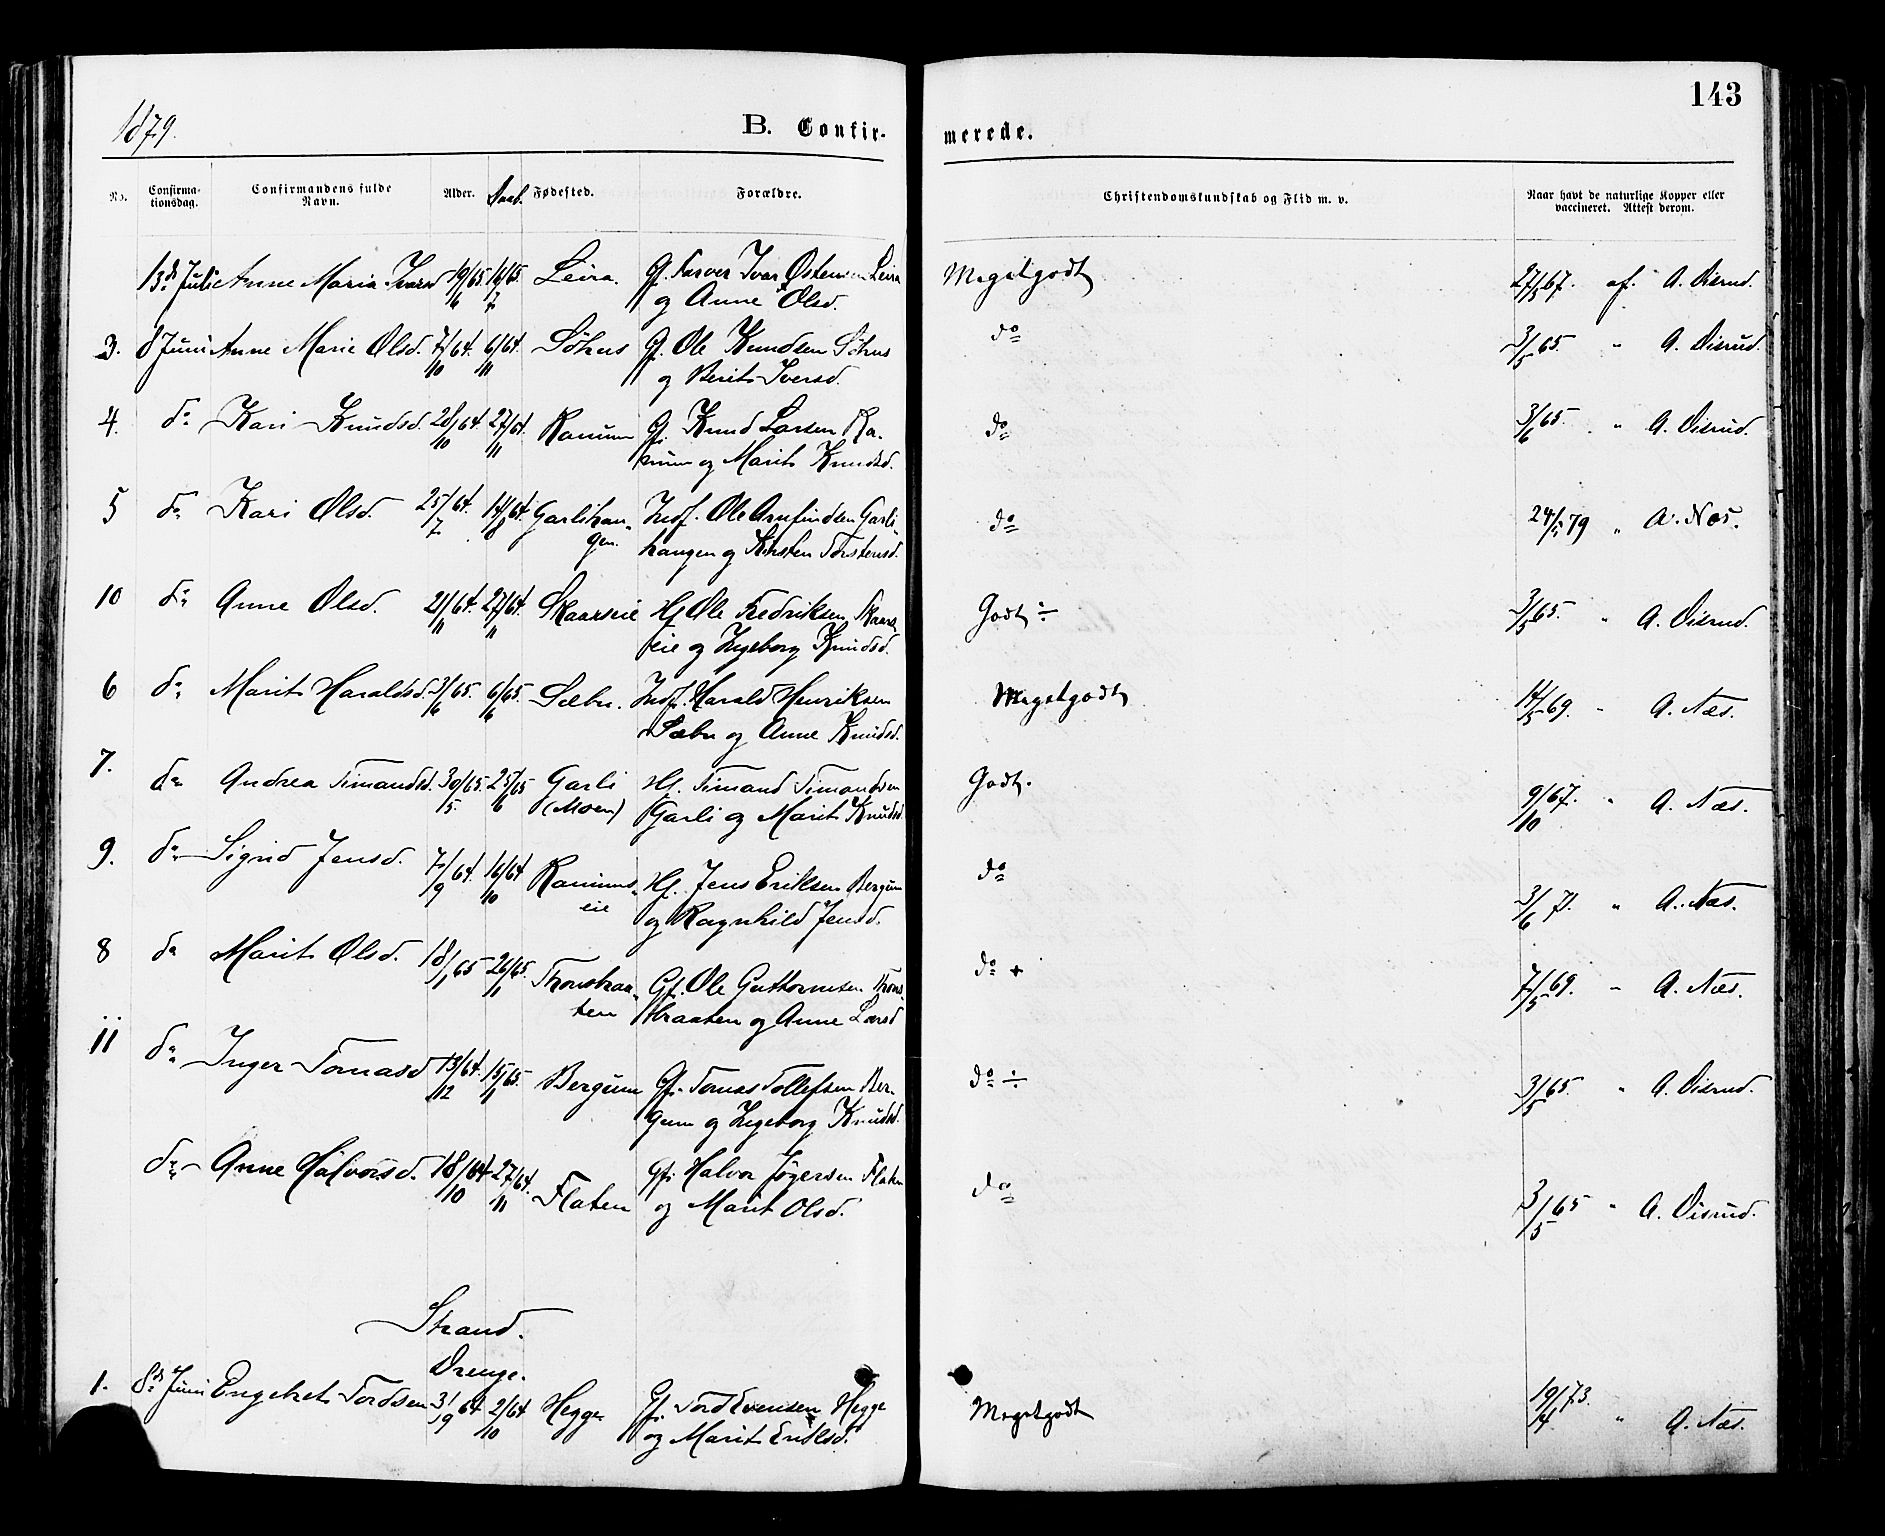 1879.
B. Confir-
merede.
143
No.
Confirma-
tionsdag.
Confirmandens fulde
Navn.
Alder.
Daab.
Fødested.
Forældre.
Christendomskundskab og Flid m. v.
Naar havt de naturlige Kopper eller
vaccineret. Attest derom.
13de Juli Anne Maria Ivarsd 19/6 65. 16/7 65 Leira. Gf. Ivar Østensen Leira Megetgodt 27/5 67. af. A. Disrud.
og Anne Olsd.
3. 8 Juni Anne Marie Olsd. 7/10 64. 6/11 64. Søhus Gf. Ole Knudsen Søhus do 3/5 65. " A. Disrud.
og Berit Iversd.
4. do Kari Knudsd. 28/10 64. 27/11 64. Ranum Gf. Knud Larsen Ra- do 3/6 65. " A. Disrud.
num og Marit Knudsd.
5 do Kari Olsd. 25/7 64. 14/8 64. Garlihau- Indf. Ole Arnfindsen Garli- do 24/5 79 " A. Næs.
gen. haugen og Kirsten Torstensd.
10 do Anne Olsd. 21/11 64. 27/11 64. Skaarseie Hf Ole Fredriksen Skaars Godt ÷ 3/5 65. " A. Disrud.
eie og Ingeborg Knudsd.
6 do Marit Haraldsd. 3/6 65. 6/6 65 Sæbu. Indf. Harald Henriksen Megetgodt 14/5 69. " A. Næs.
Sæbu og Anne Knudsd.
7. do Andrea Timandsd. 30/5 65. 25/6 65 Garli Hf. Timand Timandsen Godt. 9/10 67. " A. Næs.
(Moen) Garli og Marit Knudsd.
9. do Sigrid Jensd. 7/9 64. 16/10 64 Ranums- Hf. Jens Eriksen Bergum do 3/6 71. " A. Næs.
eie og Ragnhild Jensd.
8 do Marit Olsd. 18/1 65 26/1 65. Thonsbraa- Gf. Ole Guttormsen Thons- do + 7/5 69. " A. Næs.
ten braaten og Anne Larsd
11 do Inger Tomasd 13/12 64. 15/1 65. Bergum Gf. Tomas Tollefsen Ber- do ÷ 3/5 65. " A. Disrud.
gum og Ingeborg Knudsd.
do Anne Halvorsd. 18/10 64 27/11 64. Flaten Gf. Halvor Jøgersen Flaten do 3/5 65 " A. Disrud.
og Marit Olsd.
Strand.
Drenge.
1. 8de Juni Engebret Tordsen 31/9 64 2/10 64 Hegge Gf. Tord Evensen Hegge Megetgodt 19/4 73. " A. Næs.
og Marit Eriksd.